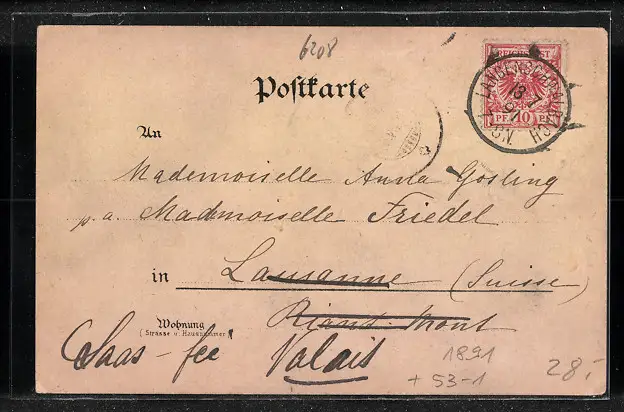 6208
Postkarte
REICHSPOST
PF 10 PF
LANGENSCHWALBACH
18 7
97
An
Mademoiselle Anna Gosling
p.a. Mademoiselle Friedel
in Lausanne (Suisse)
Riant-Mont
Wohnung
(Strasse u. Hausnummer)
Saas-fee Valais
1891
+53-1
28.-